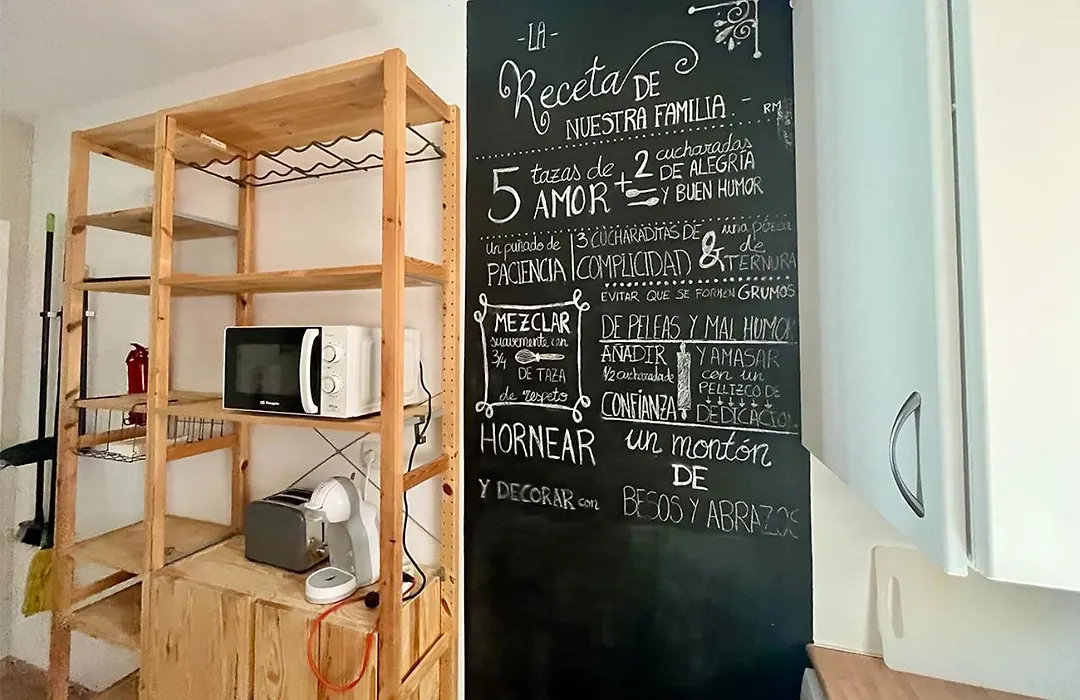 -LA-
Receta DE
NUESTRA FAMILIA
RM
5 tazas de AMOR + 2 cucharadas DE ALEGRÍA Y BUEN HUMOR
un puñado de PACIENCIA
3 CUCHARADITAS DE COMPLICIDAD
& una pizca de TERNURA
EVITAR QUE SE FORMEN GRUMOS
DE PELEAS Y MAL HUMOR
MEZCLAR
suavemente con
3/4
DE TAZA
de respeto
AÑADIR
1/2 cucharada de
CONFIANZA
Y AMASAR
con un
PELLIZCO DE
DEDICACION
HORNEAR
un montón
DE
Y DECORAR con
BESOS Y ABRAZOS